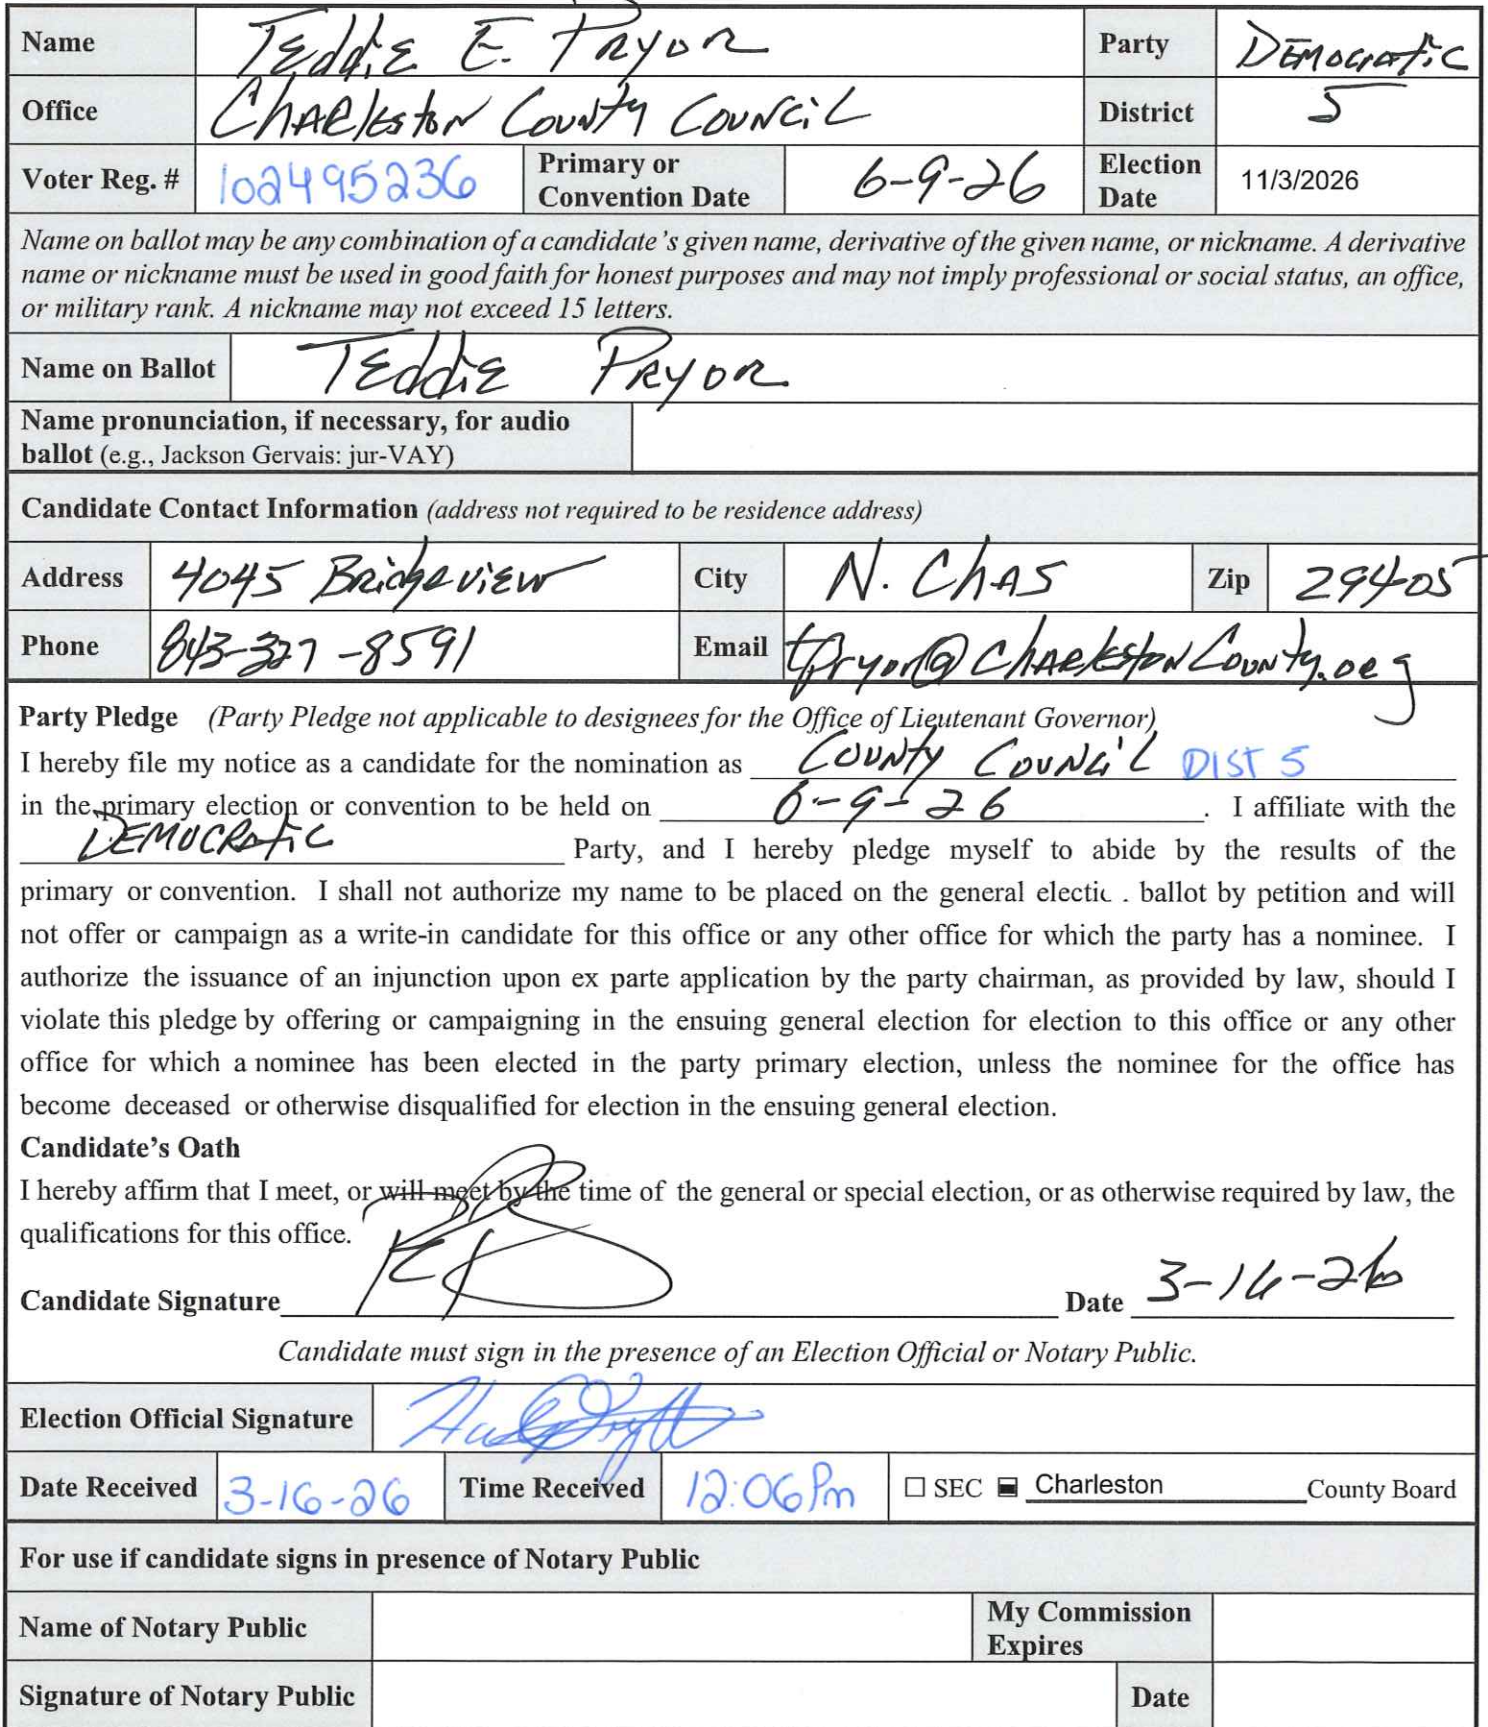 Name Teddie E. Pryor Party Democratic
Office Charleston County Council District 5
Voter Reg. # 1024995236 Primary or Convention Date 6-9-26 Election Date 11/3/2026
Name on ballot may be any combination of a candidate's given name, derivative of the given name, or nickname. A derivative
name or nickname must be used in good faith for honest purposes and may not imply professional or social status, an office,
or military rank. A nickname may not exceed 15 letters.
Name on Ballot Teddie Pryor
Name pronunciation, if necessary, for audio
ballot (e.g., Jackson Gervais: jur-VAY)
Candidate Contact Information (address not required to be residence address)
Address 4045 Bridgeview City N. Chas Zip 29405
Phone 843-327-8591 Email tpryor@CharlestonCounty.org
Party Pledge (Party Pledge not applicable to designees for the Office of Lieutenant Governor)
I hereby file my notice as a candidate for the nomination as County Council DIST 5
in the primary election or convention to be held on 6-9-26. I affiliate with the
Democratic Party, and I hereby pledge myself to abide by the results of the
primary or convention. I shall not authorize my name to be placed on the general electic . ballot by petition and will
not offer or campaign as a write-in candidate for this office or any other office for which the party has a nominee. I
authorize the issuance of an injunction upon ex parte application by the party chairman, as provided by law, should I
violate this pledge by offering or campaigning in the ensuing general election for election to this office or any other
office for which a nominee has been elected in the party primary election, unless the nominee for the office has
become deceased or otherwise disqualified for election in the ensuing general election.
Candidate's Oath
I hereby affirm that I meet, or will meet by the time of the general or special election, or as otherwise required by law, the
qualifications for this office.
Candidate Signature Date 3-16-26
Candidate must sign in the presence of an Election Official or Notary Public.
Election Official Signature
Date Received 3-16-26 Time Received 12:06 Pm ☐ SEC Charleston County Board
For use if candidate signs in presence of Notary Public
Name of Notary Public My Commission Expires
Signature of Notary Public Date